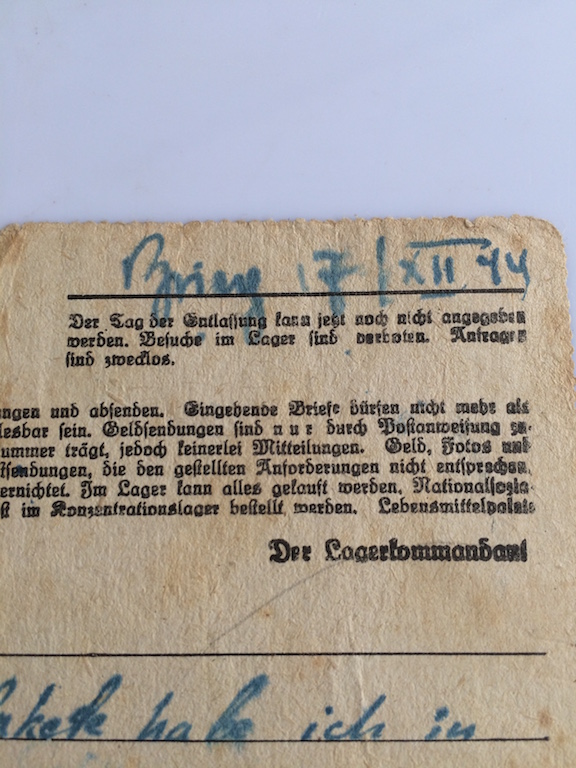 Brieg 17/XII 44
Der Tag der Entlassung kann jetzt noch nicht angegeben
werden. Besuche im Lager sind verboten. Anfragen
sind zwecklos.
ngen und absenden. Eingehende Briefe dürfen nicht mehr als
lesbar sein. Geldsendungen sind nur durch Postanweisung zu-
ummer trägt, jedoch keinerlei Mitteilungen. Geld, Fotos und
sendungen, die den gestellten Anforderungen nicht entsprechen,
ernichtet. Im Lager kann alles gekauft werden. Nationalsozia-
st im Konzentrationslager bestellt werden. Lebensmittelpakete
Der Lagerkommandant
habe ich in